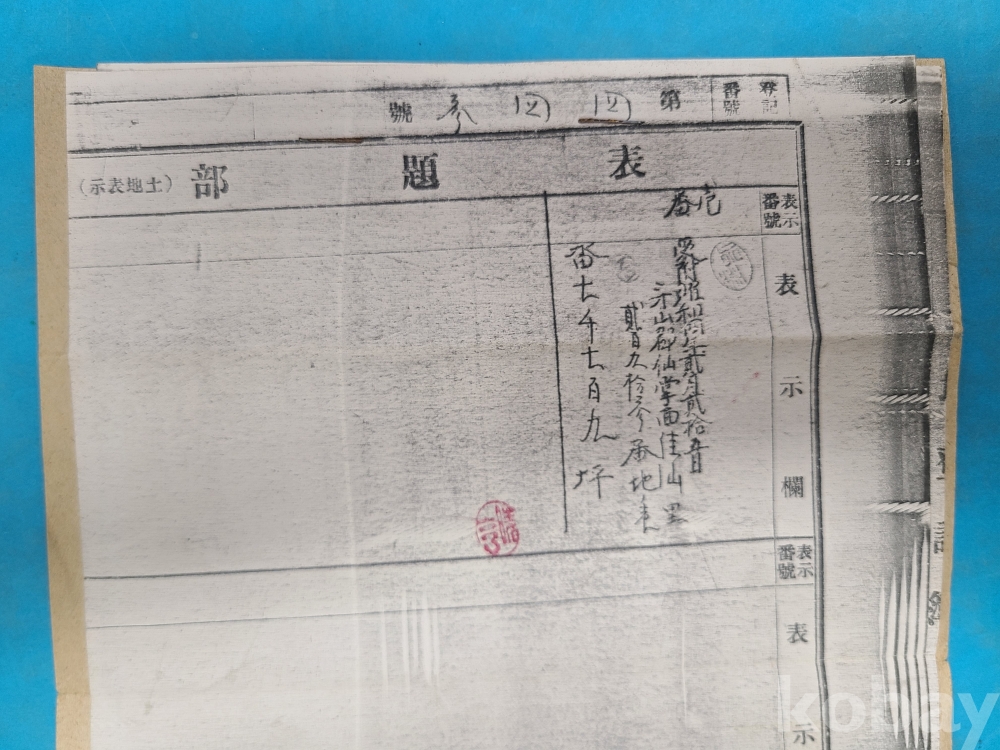 登記番號 第四四參號
表題部（土地表示）
表示番號
壱番
表示欄
受附昭和 年貳月貳拾五日
牙山郡仙掌面佳山里
貳百九拾參番地
畓七千七百九坪
表示番號
表示
kobay